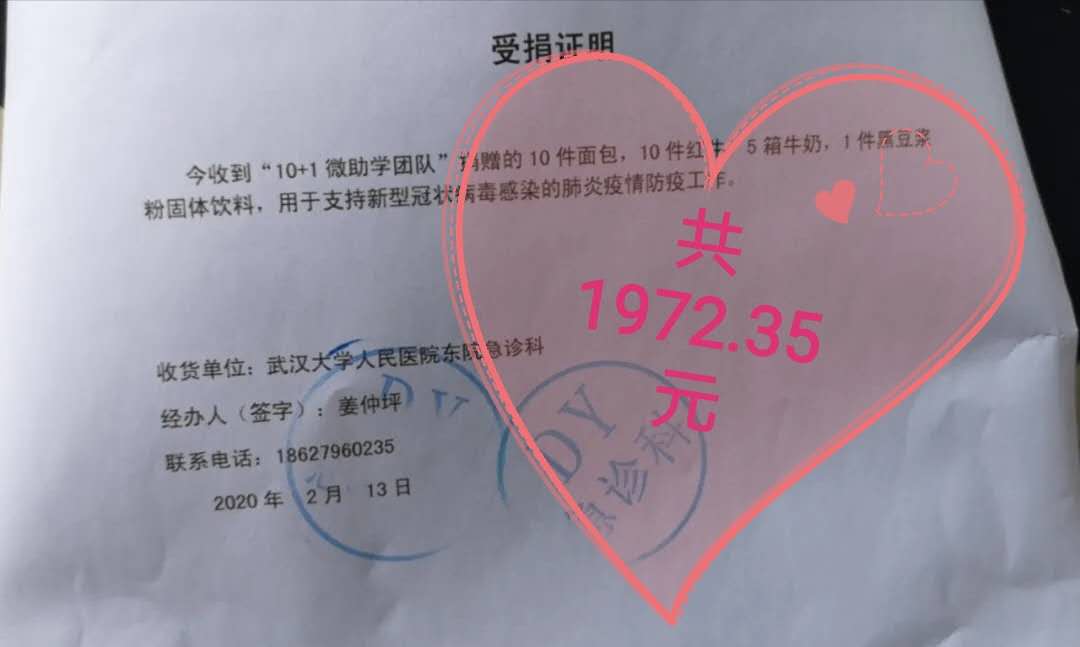 受捐证明
今收到“10+1微助学团队”捐赠的10件面包，10件红牛，5箱牛奶，1件黑豆浆
粉固体饮料，用于支持新型冠状病毒感染的肺炎疫情防疫工作。
共
1972.35
元
收货单位：武汉大学人民医院东院急诊科
经办人（签字）：姜仲坪
联系电话：18627960235
2020年 2月 13日
DY
DY
急诊科